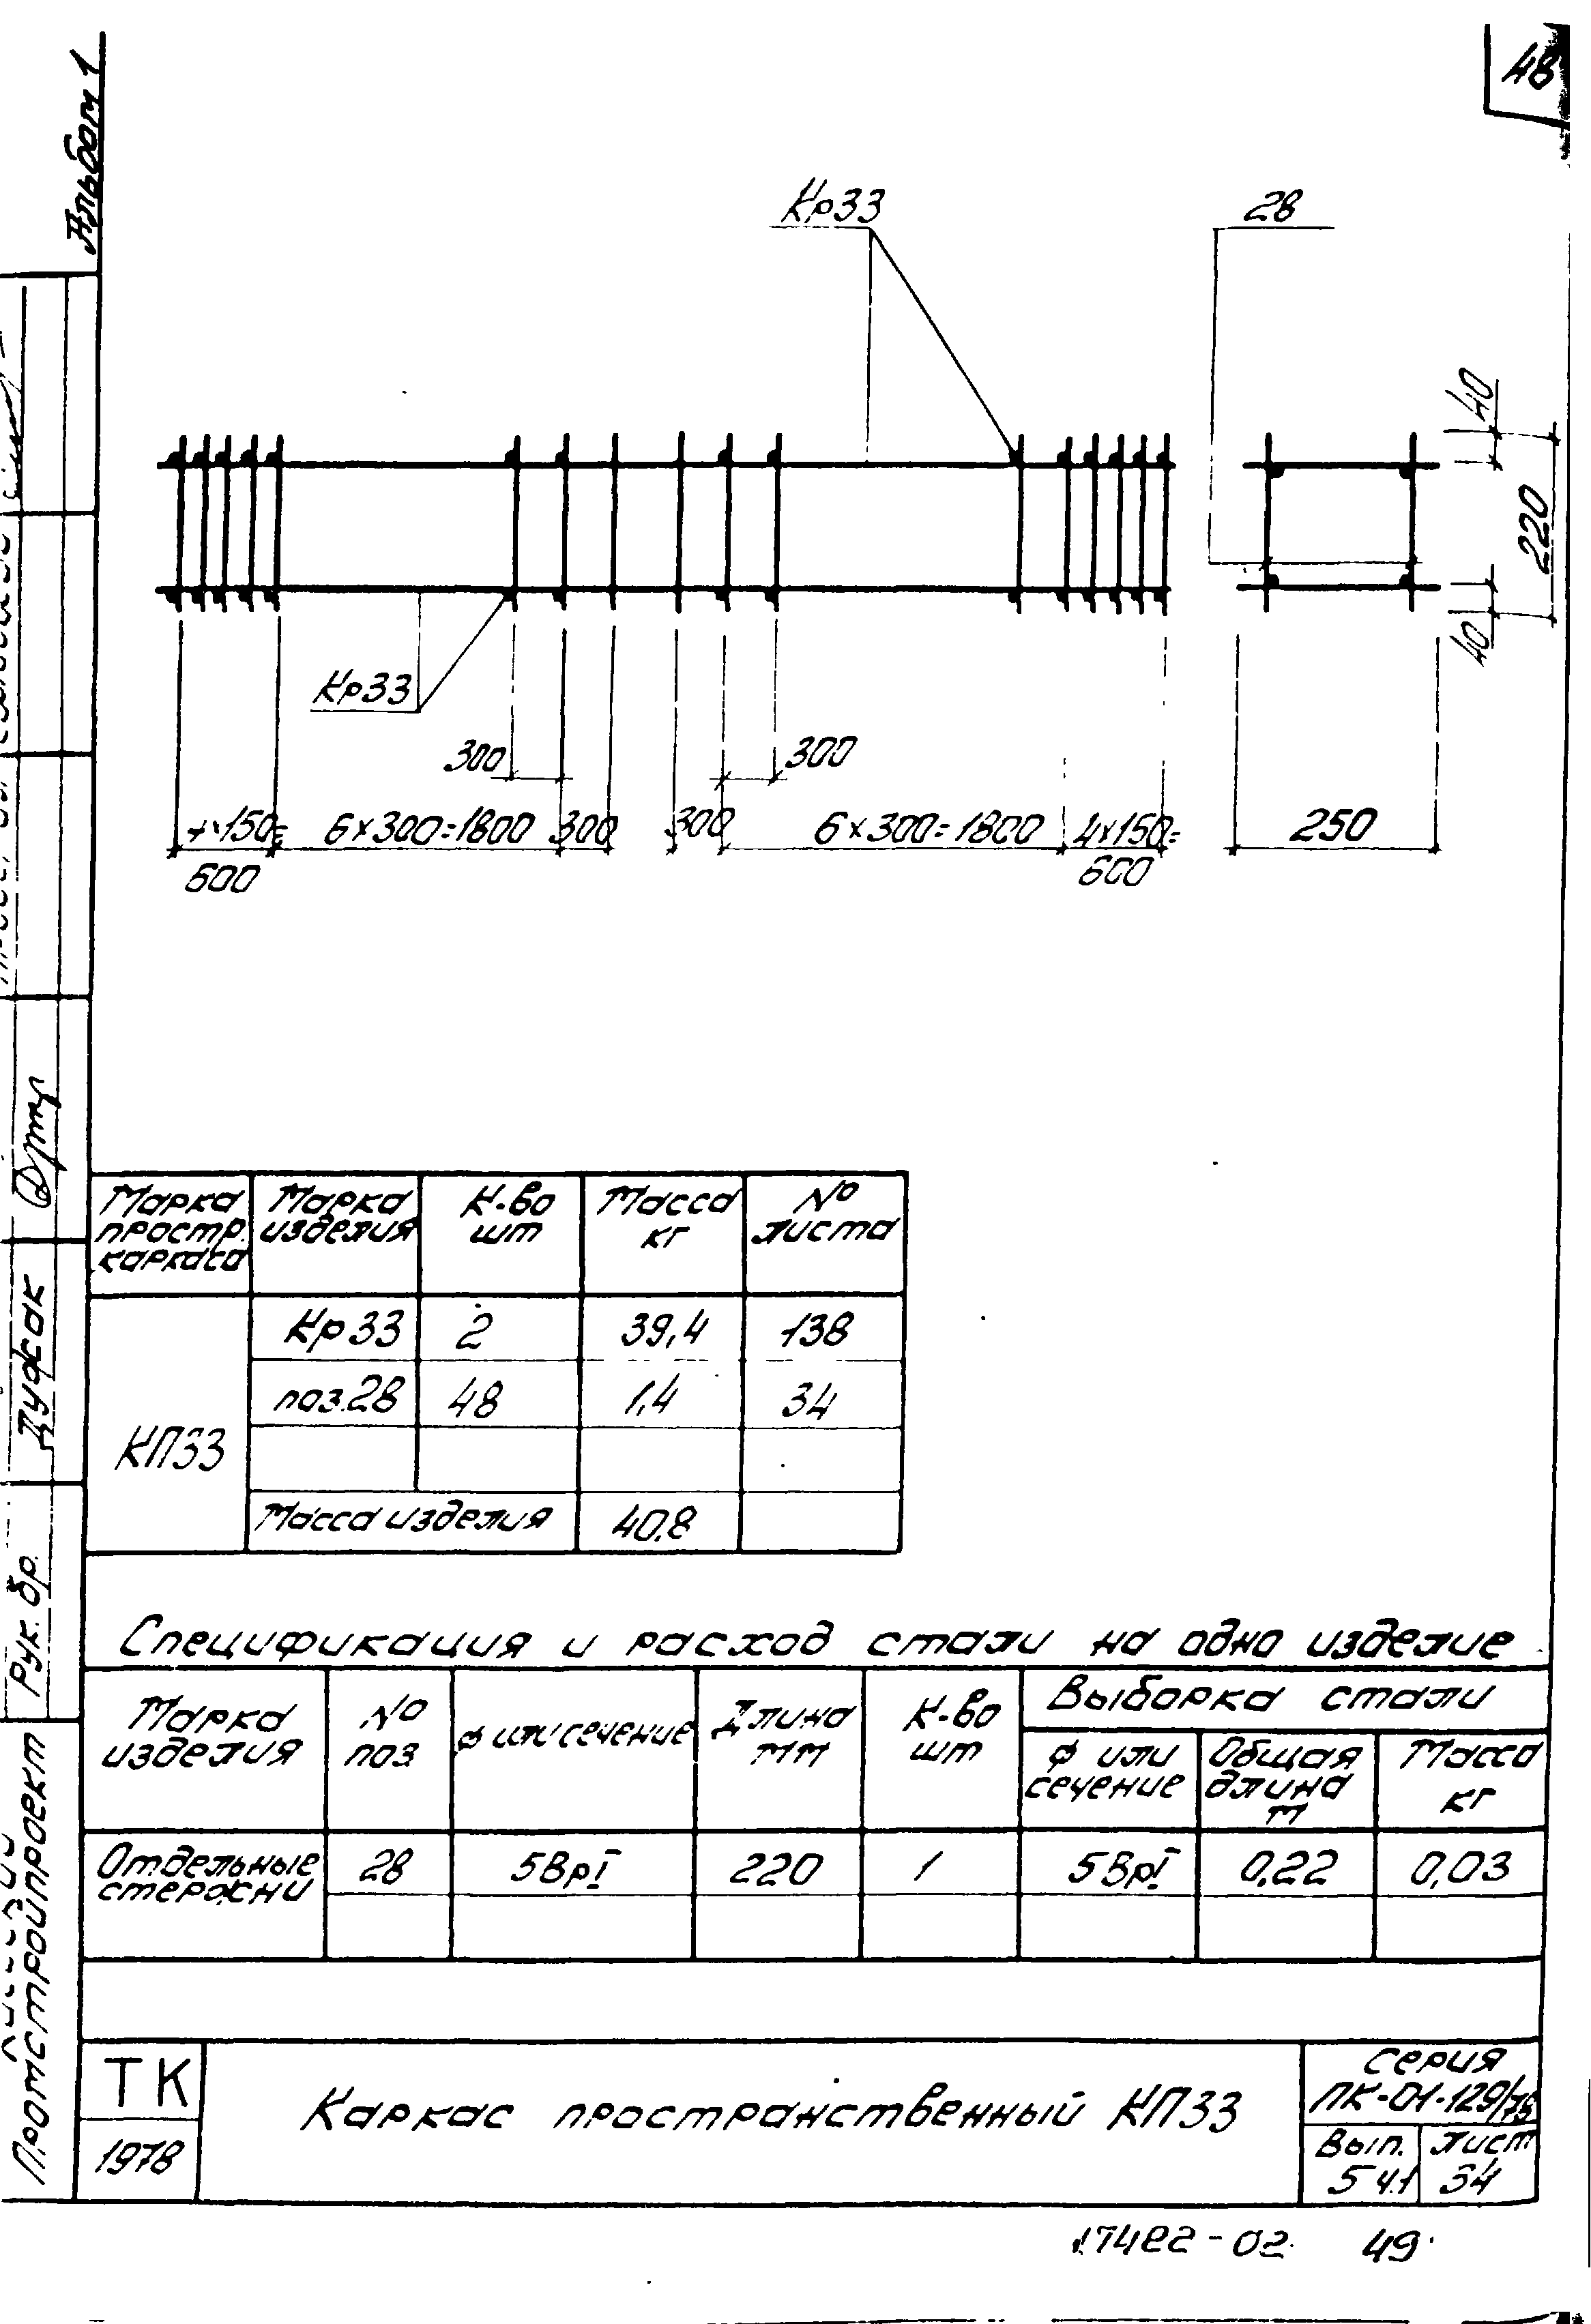 Альбом 1
48
Кр33
28
40
220
40
Кр33
300
300
4×150=
600
6×300=1800
300
300
6×300=1800
4×150=
600
250
Марка простр. каркаса
Марка изделия
К-во шт
Масса кг
№ листа
КП33
Кр33 2 39,4 138
поз.28 48 1,4 34
Масса изделия 40,8
Спецификация и расход стали на одно изделие
Марка изделия
№ поз
ф или сечение
Длина мм
К-во шт
Выборка стали
ф или сечение
Общая длина м
Масса кг
Отдельные стержни
28 5ВрI 220 1 5ВрI 0,22 0,03
ТК
1978
Каркас пространственный КП33
серия
ПК-01-129/78
Вып. 5 ч.1
лист 34
17482-02 49
Дуфсак
Рук. бр.
Промстройпроект